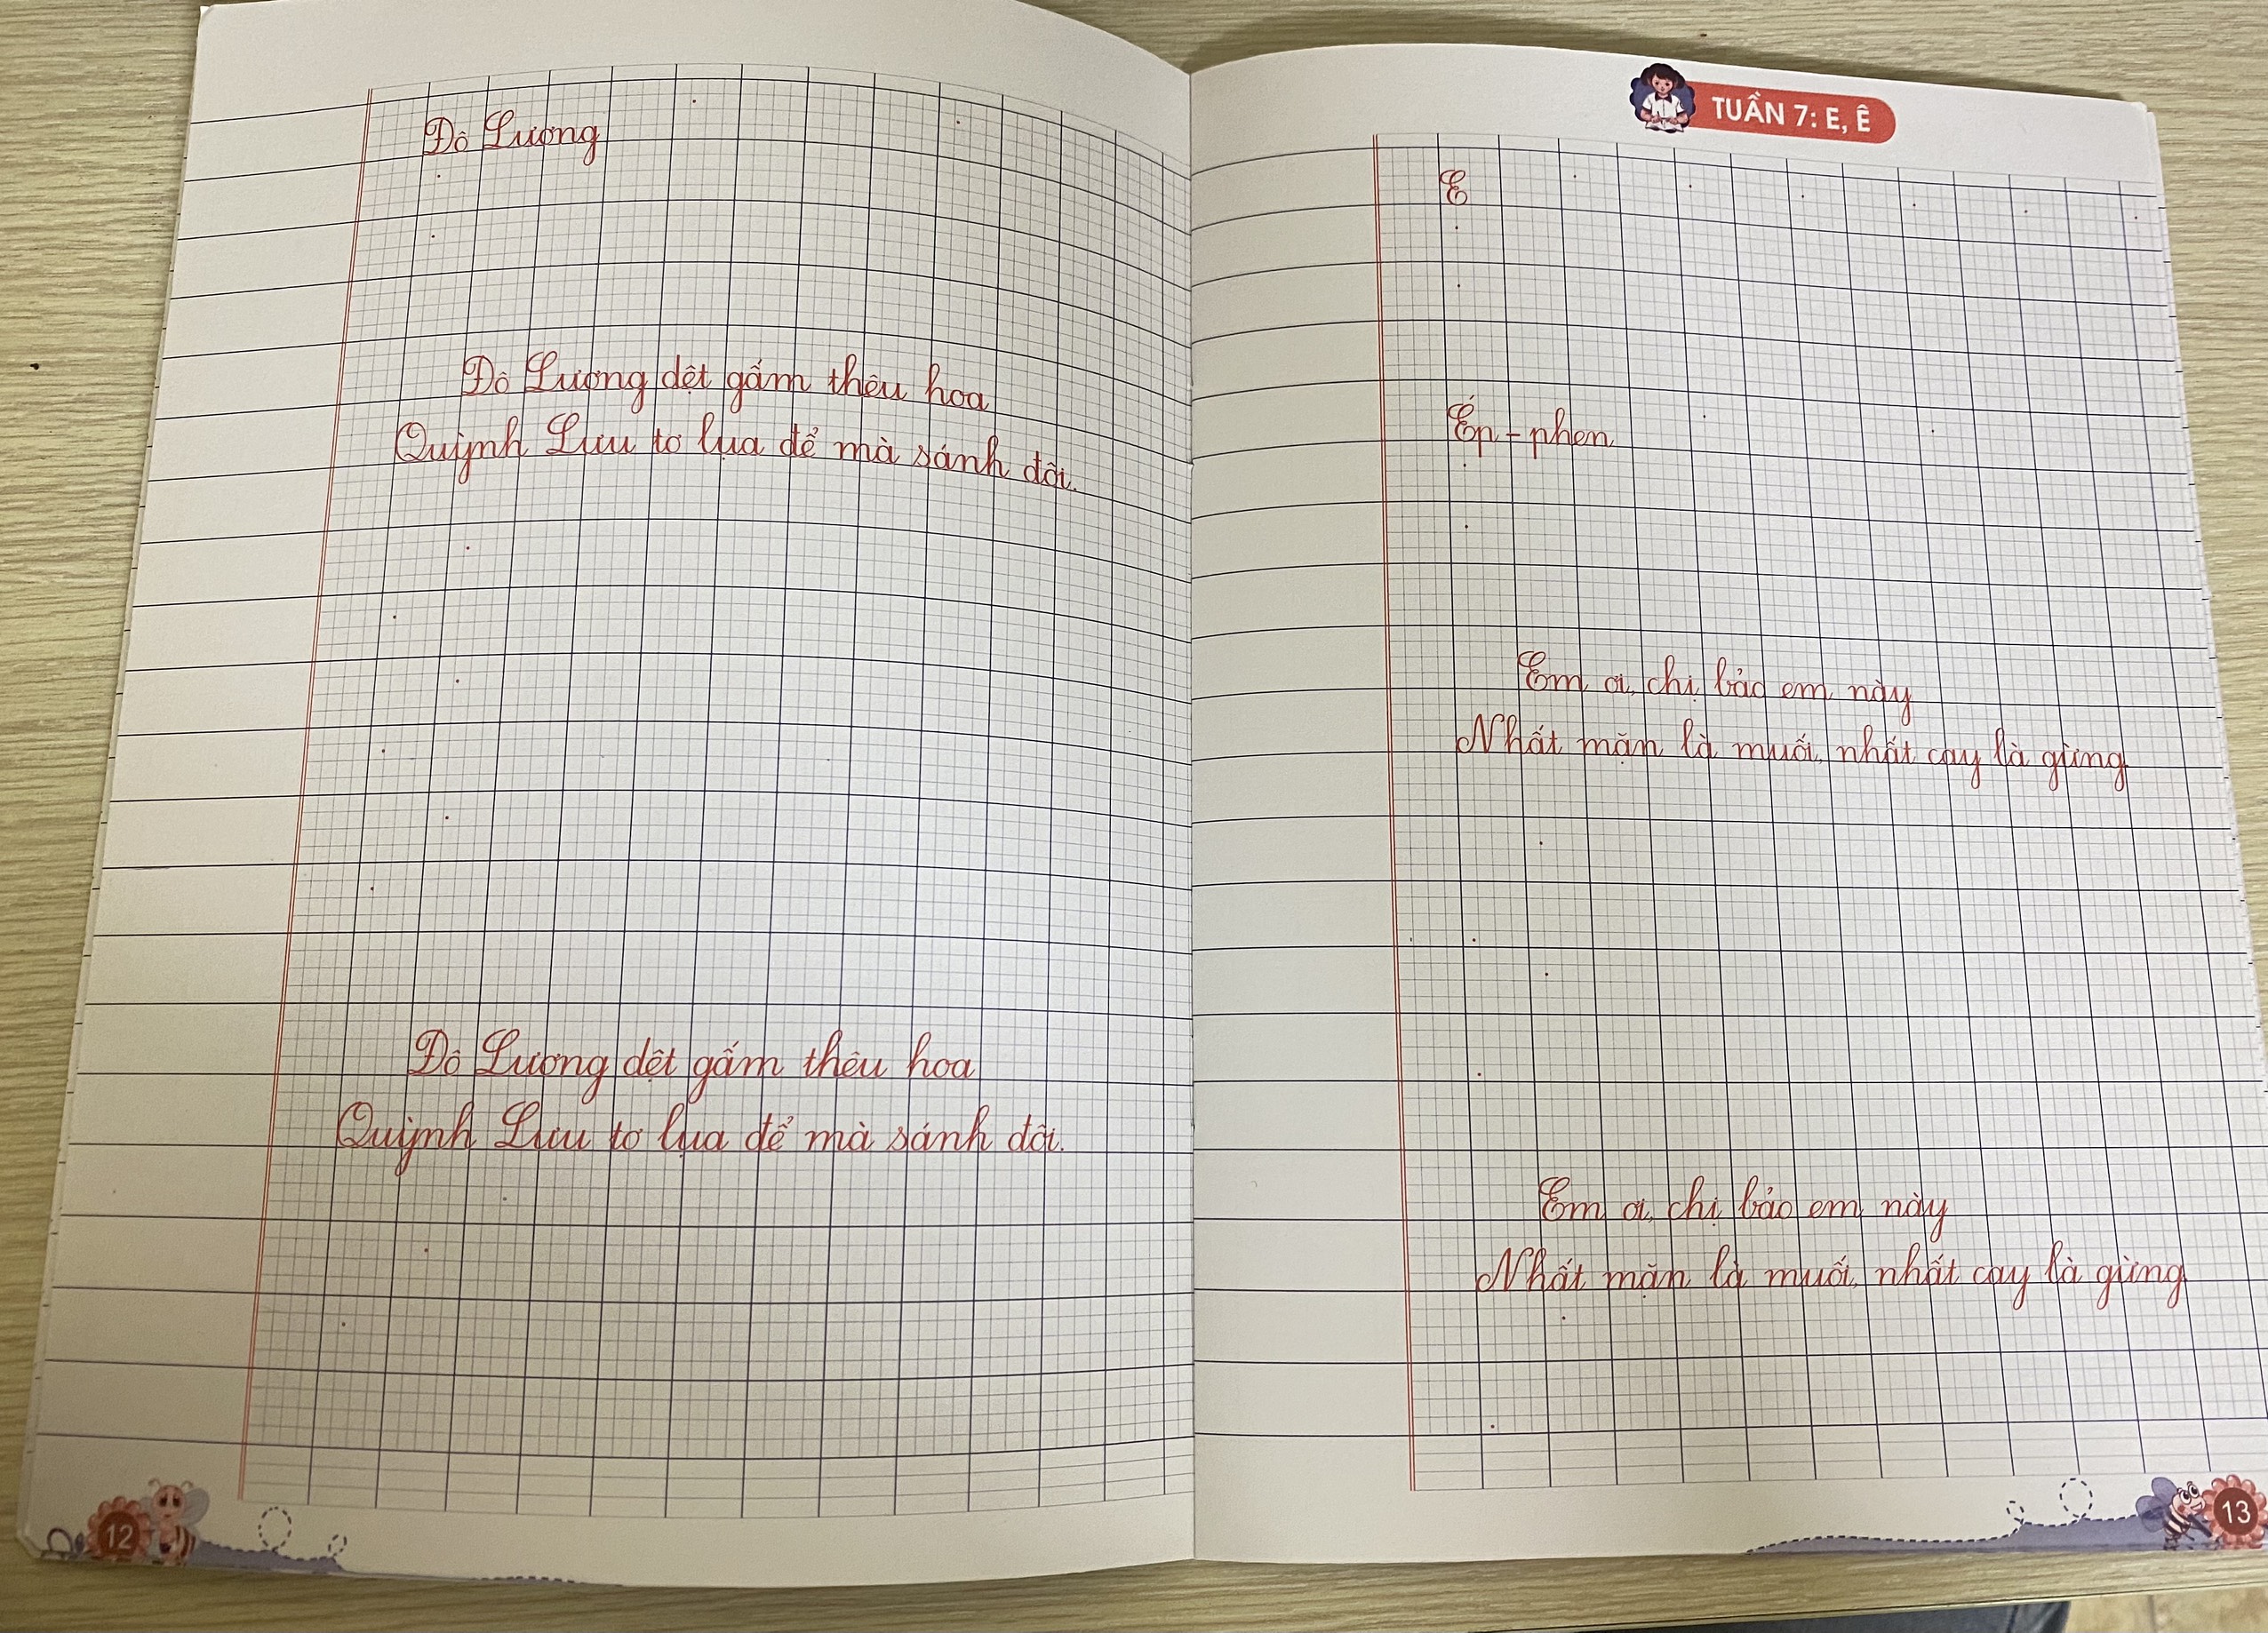 Đô Lương
Đô Lương dệt gấm thêu hoa
Quỳnh Lưu tơ lụa để mà sánh đôi.
Đô Lương dệt gấm thêu hoa
Quỳnh Lưu tơ lụa để mà sánh đôi.
12
TUẦN 7: E, Ê
E
Ép-phen
Em ơi, chị bảo em này
Nhất mặn là muối, nhất cay là gừng
Em ơi, chị bảo em này
Nhất mặn là muối, nhất cay là gừng
13